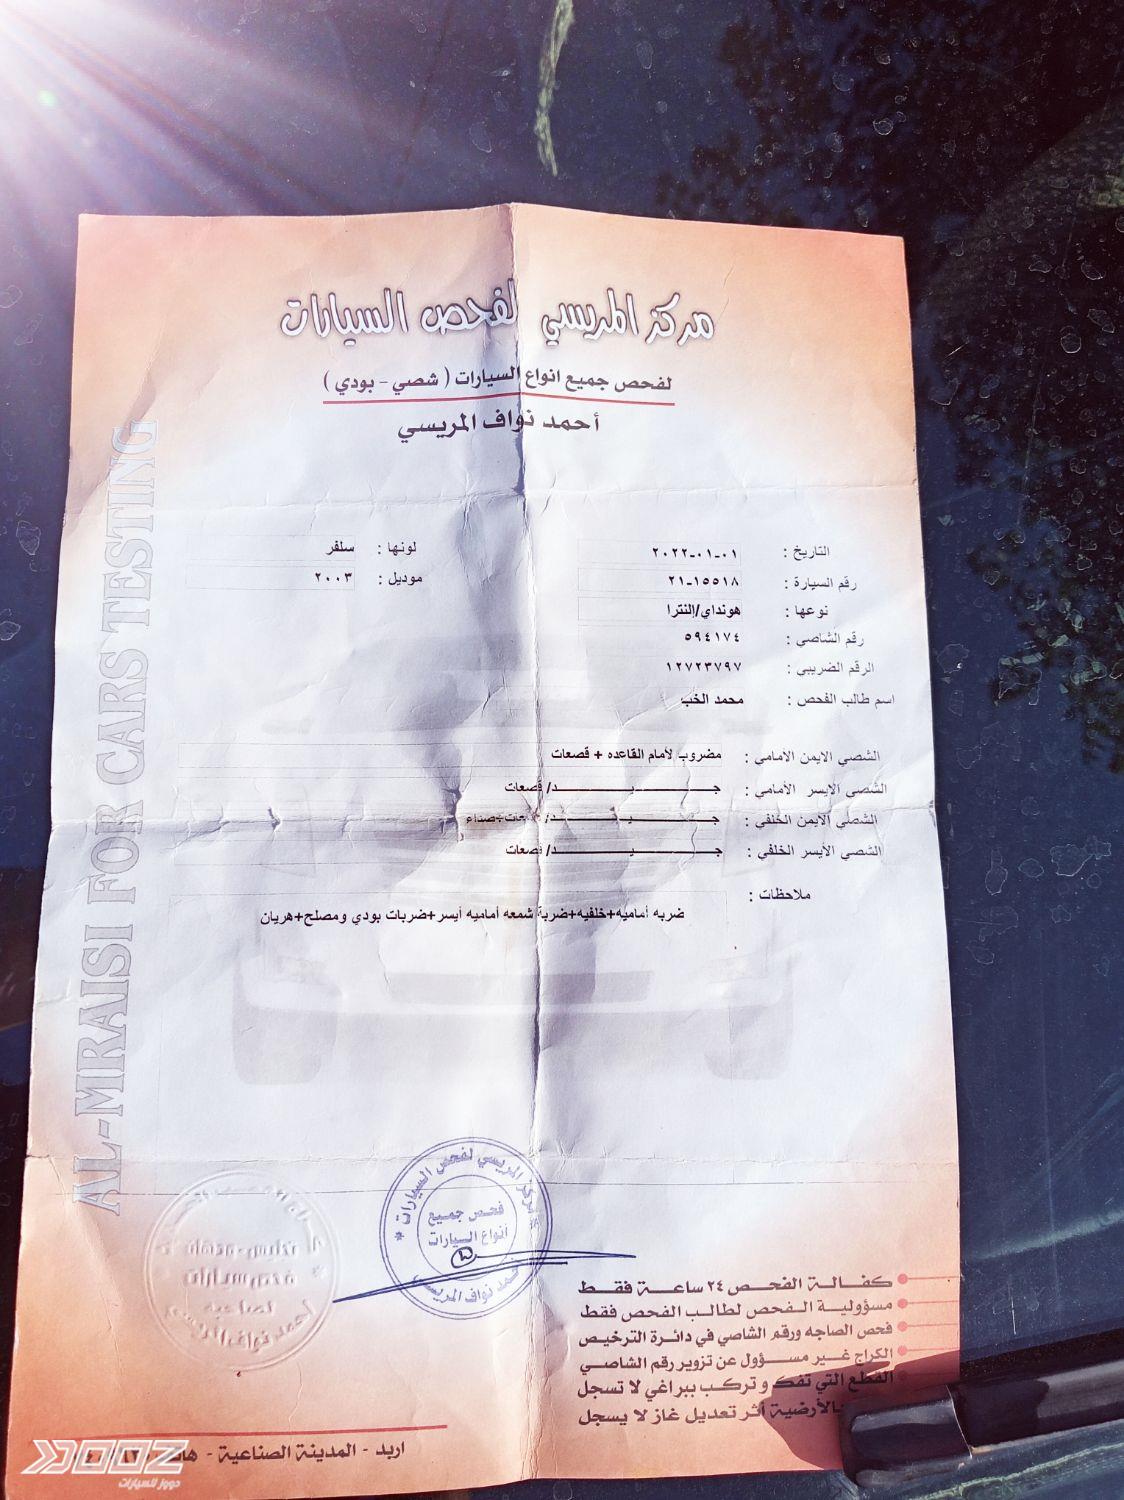 مركز المريسي لفحص السيارات
لفحص جميع انواع السيارات ( شصي - بودي )
أحمد نواف المريسي
AL-MRAISI FOR CARS TESTING
التاريخ : ٢٠٢٢-٠١-٠١ لونها : سلفر
رقم السيارة : ٢١-١٥٥١٨ موديل : ٢٠٠٣
نوعها : هونداي/إلنترا
رقم الشاصي : ٥٩٤١٧٤
الرقم الضريبي : ١٢٧٢٣٧٩٧
اسم طالب الفحص : محمد الخب
الشصي الايمن الأمامي : مضروب لأمام القاعده + قصعات
الشصي الايسر الأمامي : جـــيـــد/ قصعات
الشصي الأيمن الخلفي : جـــيـــد/ +صداء
الشصي الأيسر الخلفي : جـــيـــد/ قصعات
ملاحظات :
ضربه أماميه+خلفيه+ضربة شمعه أماميه أيسر+ضربات بودي ومصلح+هريان
مركز المريسي لفحص السيارات
فحص جميع
أنواع السيارات
أحمد نواف المريسي
فحص سيارات
لصاحبه
أحمد نواف المريسي
كفـالـة الفحـص ٢٤ ساعـة فقـط
مسؤولية الـفحص لطالب الفحص فقط
فحص الصاجه ورقم الشاصي في دائرة الترخيص
الكراج غير مســؤول عن تزوير رقم الشاصـي
القطع التي تفك و تركـب ببراغي لا تسجل
بالأرضية أثر تعديل غاز لا يسجل
اربد - المدينة الصناعية -
DOOZ
دووز للسيارات